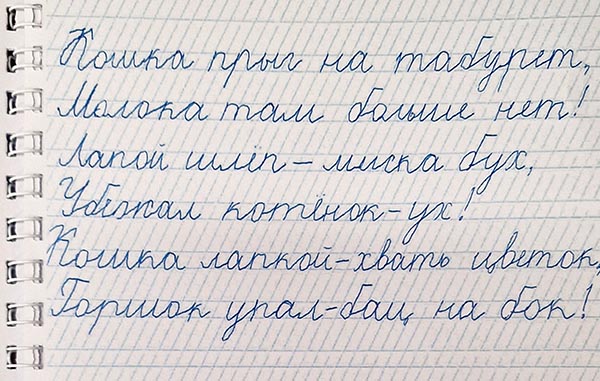 Кошка прыг на табурет,
Молока там больше нет!
Лапой шлёп – миска бух,
Убежал котёнок-ух!
Кошка лапкой-хвать цветок,
Горшок упал-бац, на бок!